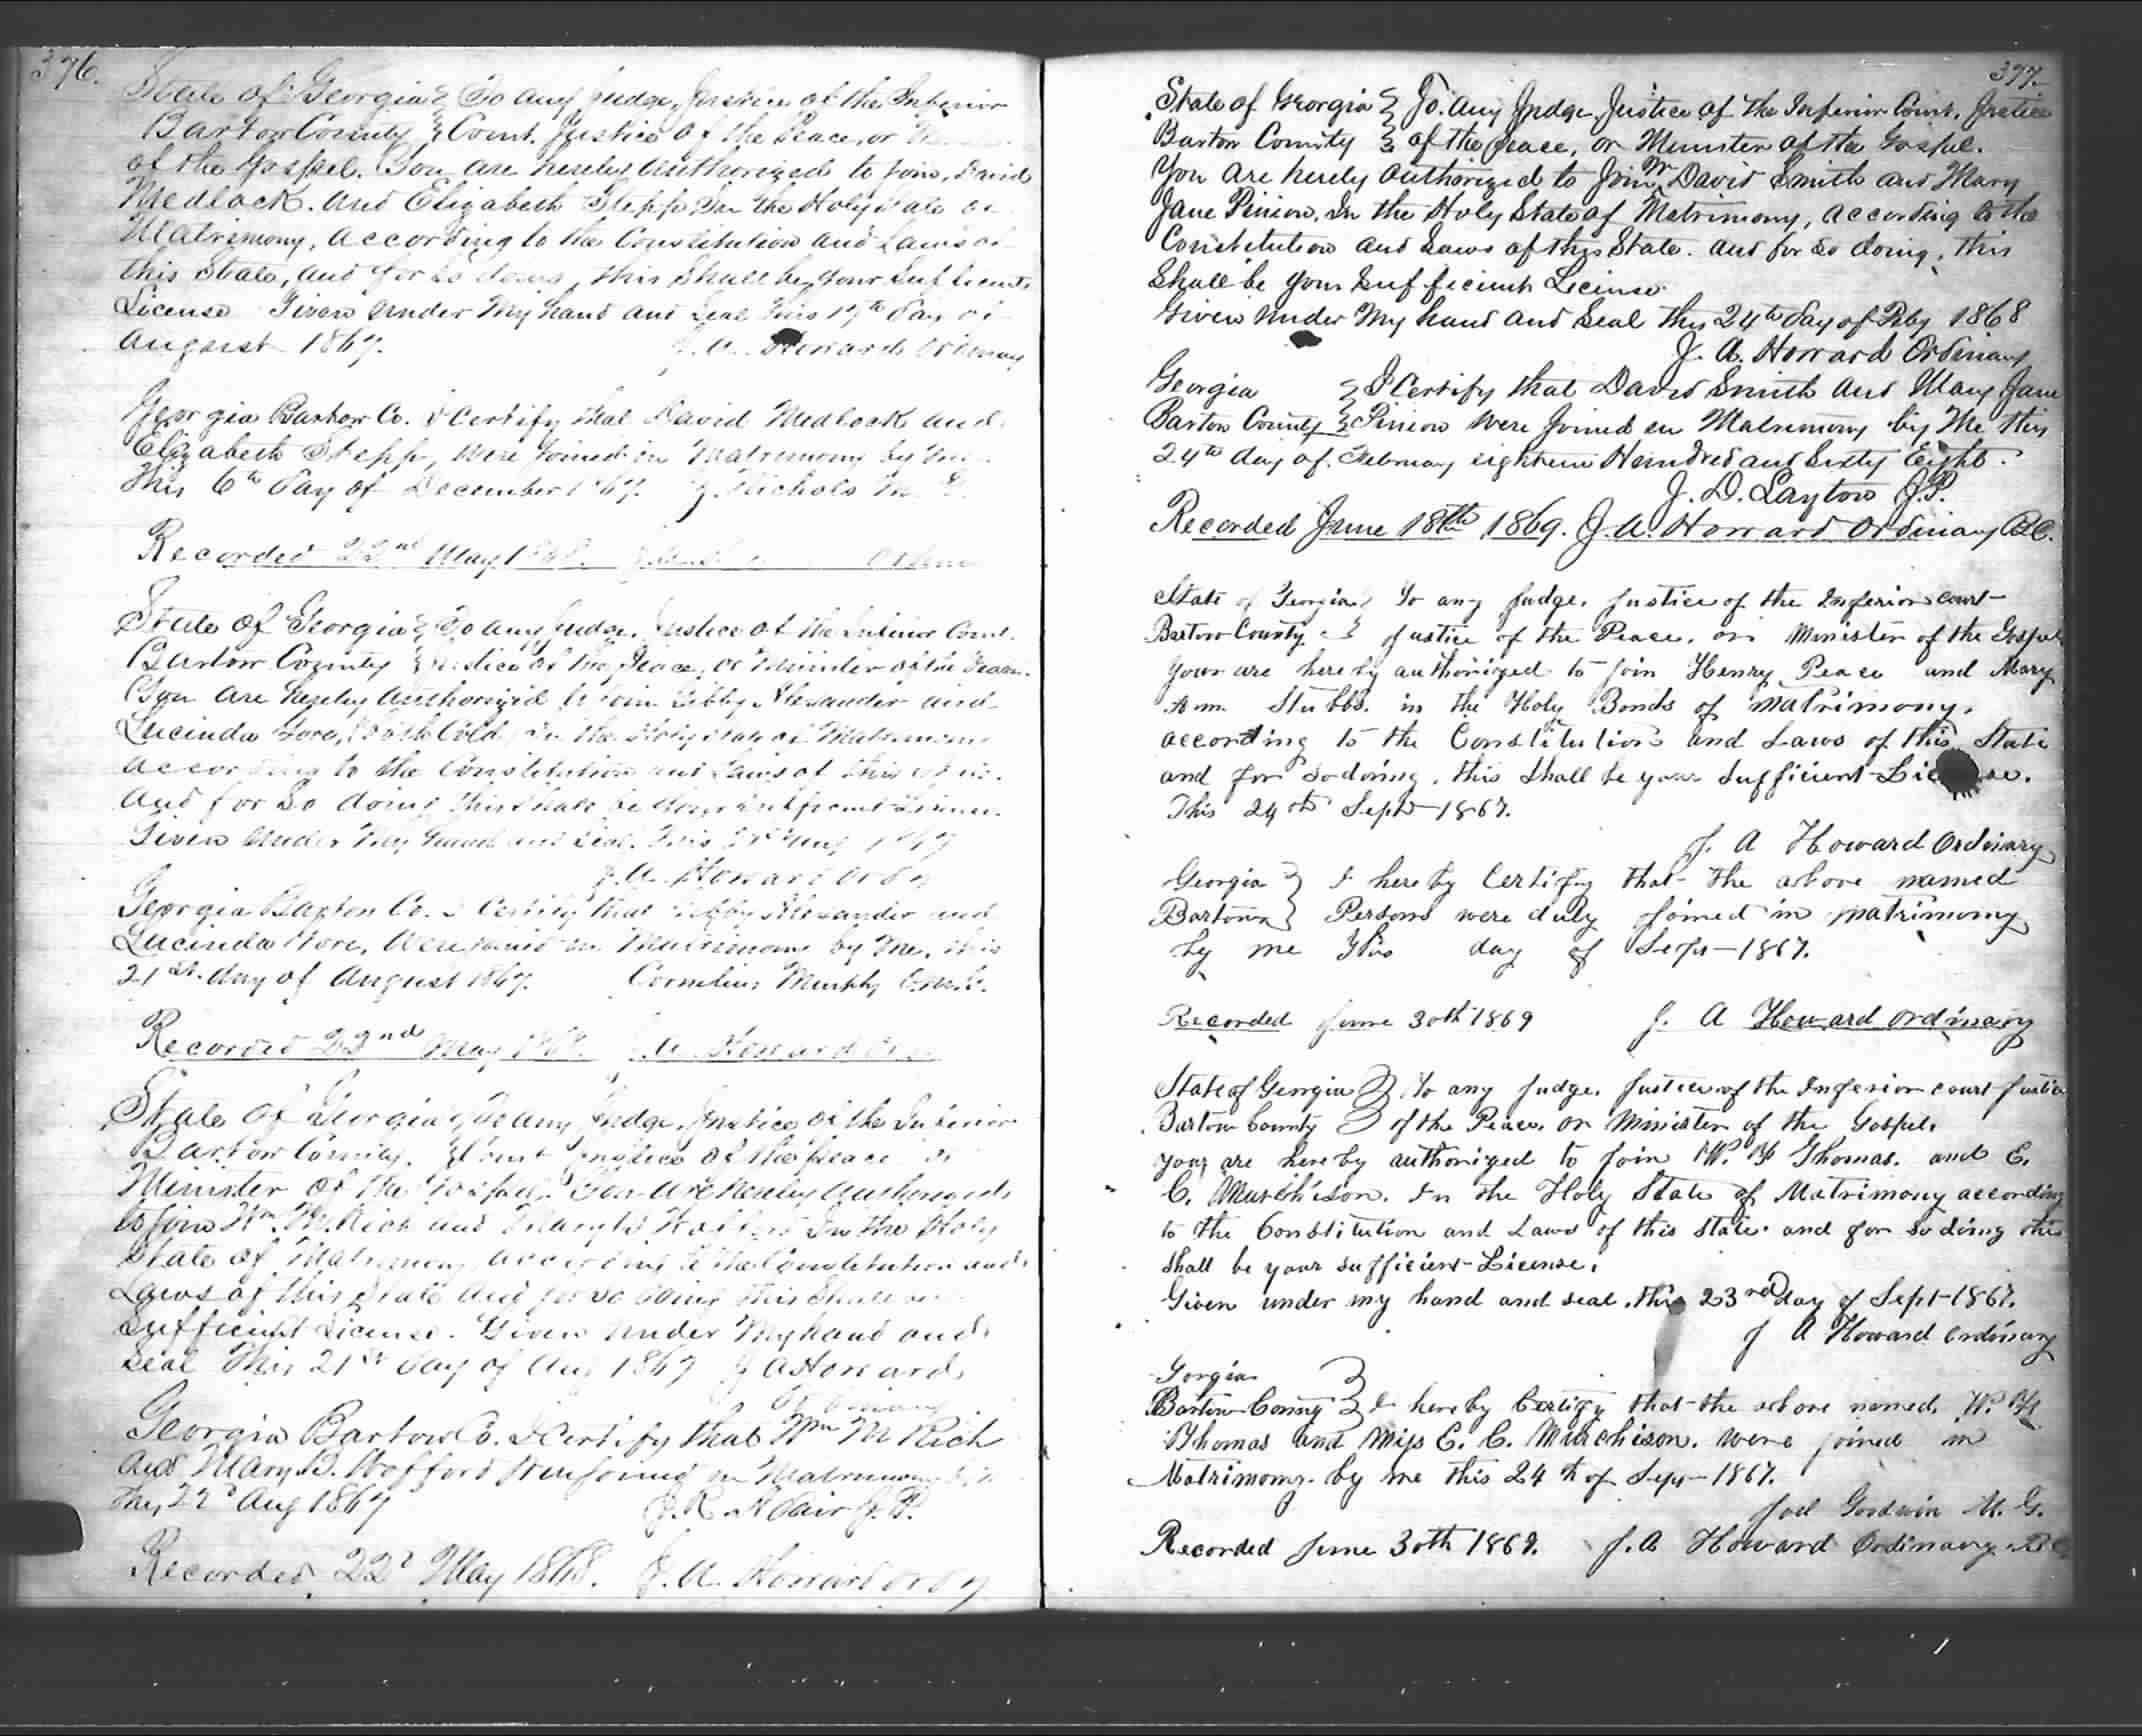 376.
State of Georgia } To any Judge, Justice of the Inferior
Bartow County } Court, Justice of the Peace, or
of the Gospel. You are hereby authorized to join, David
Medlock. and Elizabeth Stepp In the Holy State of
Matrimony, according to the Constitution and Laws of
this State, and for so doing, this shall be your sufficient
License Given under my hand and seal this 17th day of
August 1867. J. A. Howard Ordinary
Georgia Bartow Co. I Certify that David Medlock and
Elizabeth Stepp, were joined in Matrimony by me
This 6th Day of December 1867. Nichols M. G.
Recorded 22nd May 1868.
State of Georgia } To any Judge, Justice of the Inferior Court.
Bartow County } Justice of the Peace, or Minister of the
You are hereby authorized to join Alexander and
Lucinda Gore, In the Holy State of Matrimony
according to the Constitution and Laws of this State.
and for so doing this shall be your sufficient License.
Given under my hand and seal this Aug 1867
J. A. Howard Ordy
Georgia Bartow Co. I Certify that Alexander and
Lucinda Gore, were joined in Matrimony by me, this
21st day of August 1867. Cornelius Murphy
Recorded 22nd May 1868. J. A. Howard
State of Georgia } To any Judge, Justice of the Inferior
Bartow County. } Court Justice of the Peace or
Minister of the Gospel. You are hereby authorized
to join Wm. M. Rich and Mary Wofford In the Holy
State of Matrimony according to the Constitution and
Laws of this State and for so doing this shall be
sufficient License. Given under my hand and
seal This 21st day of Aug 1867 J A Howard
Ordinary
Georgia Bartow Co. I Certify that Wm M Rich
and Mary D. Wofford were joined in Matrimony
22d Aug 1867 J. R. Adair J. P.
Recorded 22d May 1868. J. A. Howard Ordy
377.
State of Georgia } To. any Judge, Justice of the Inferior Court, Justice
Bartow County } of the peace, or Minister of the Gospel.
You are hereby authorized to Join Mr David Smith and Mary
Jane Pinion, In the Holy State of Matrimony, according to the
Constitution and Laws of this State. and for so doing, this
shall be your sufficient License
Given under my hand and seal this 24th day of Feby 1868
J. A. Howard Ordinary
Georgia } I Certify that David Smith and Mary Jane
Bartow County } Pinion were Joined in Matrimony by Me this
24th day of February eighteen Hundred and Sixty Eight.
J. D. Layton J.P.
Recorded June 18th 1869. J. A. Howard Ordinary B.C.
State of Georgia } To any Judge, Justice of the Inferior court
Bartow County } Justice of the Peace, or Minister of the Gospel
your are hereby authorized to join Henry Peace and Mary
Ann Stubbs. in the Holy Bonds of Matrimony,
according to the Constitution and Laws of this State
and for so doing, this shall be your sufficient License.
This 24th Sept 1867.
J. A Howard Ordinary
Georgia } I hereby Certify that the above named
Bartow } Persons were duly joined in matrimony
by me this day of Sept 1867.
Recorded June 30th 1869 J. A Howard Ordinary
State of Georgia } To any Judge, Justice of the Inferior court Justice
Bartow County } of the Peace, or Minister of the Gospel,
your are hereby authorized to join W. H Thomas. and E.
C. Murchison. In the Holy State of Matrimony according
to the Constitution and Laws of this State and for so doing this
shall be your sufficient License,
Given under my hand and seal, this 23rd day of Sept 1867.
J A Howard Ordinary
Gorgia
Bartow County } I hereby Certify that the above named, W. H
Thomas and Miss E. C. Murchison. were joined in
Matrimony by me this 24th of Sept 1867.
Joel Goodwin M. G.
Recorded June 30th 1869. J. A Howard Ordinary B C